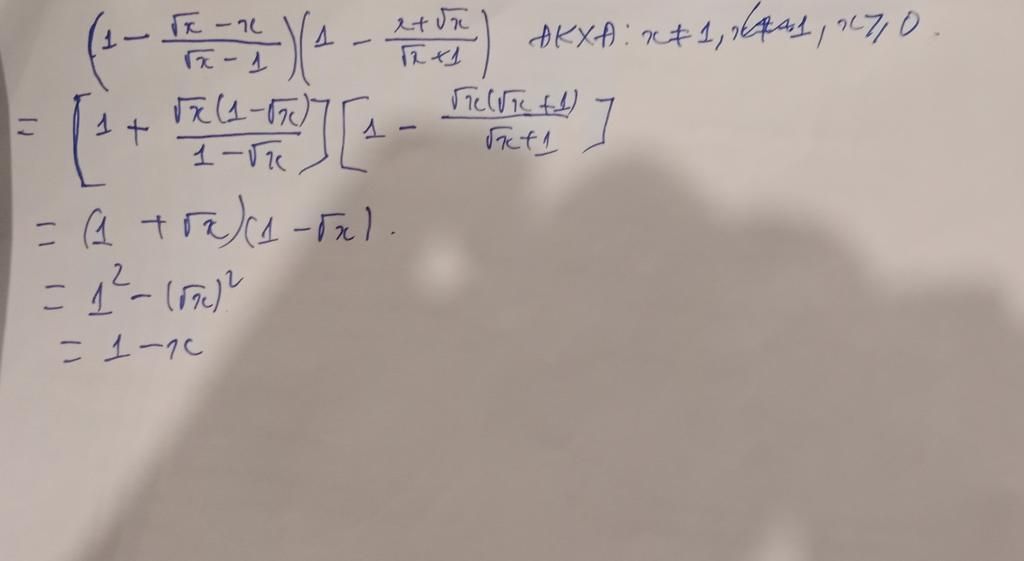 (1 - (√x - x)/(√x - 1))(1 - (x + √x)/(√x + 1)) ĐKXĐ: x ≠ 1, x ≥ 0.
= [1 + √x(1 - √x)/(1 - √x)][1 - √x(√x + 1)/(√x + 1)]
= (1 + √x)(1 - √x).
= 1² - (√x)²
= 1 - x